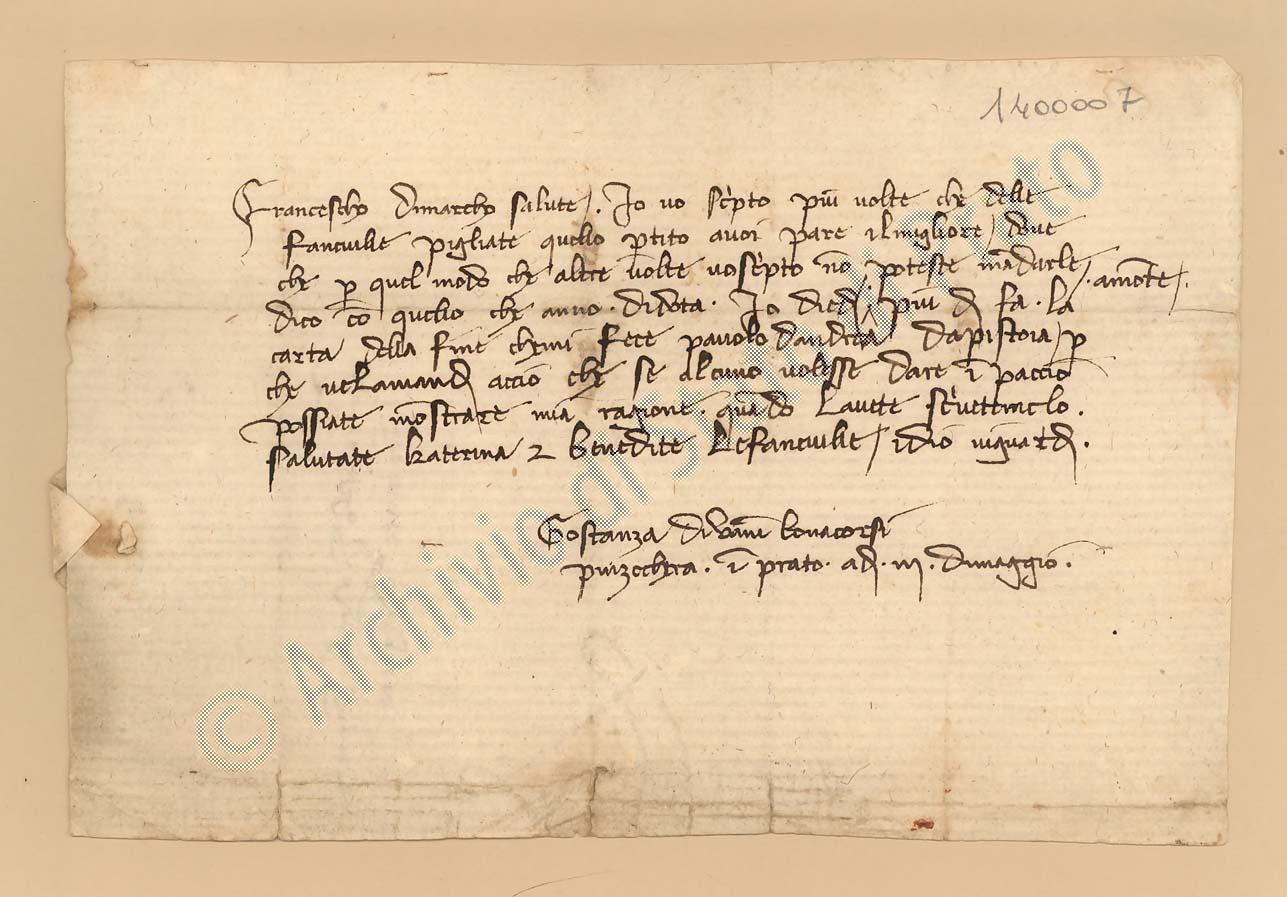 1400007
Francescho dimarcho salute /. Io vo scripto più volte che delle
fanciulle pigliate quello partito avoi pare ilmigliore / dove
che per quel modo che altre volte voscripto non poteste mandarle / . amonte / .
dico con quello che anno . didota . Io diedi / più dì fa . la
carta della fine chemi fece pauolo dandrea dapistoia / per
che velamandi acciò che se alcuno volesse dare in paccio
possiate mostrare mia ragione . quando lavete scrivetemelo .
salutate katerina z benedite lefanciulle / idio viguardi .
Gostanza di vanni bonacorsi
pinzochera . in prato . adì . iii . dimaggio .
© Archivio di Stato di Prato